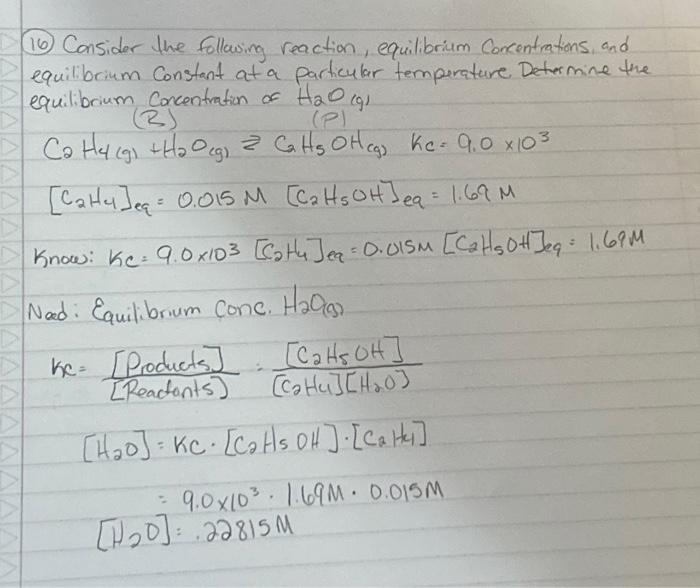 16) Consider the following reaction, equilibrium concentrations, and
equilibrium constant at a particular temperature. Determine the
equilibrium concentration of H2O (g)
(R) (P)
C2H4(g) + H2O(g) ⇌ C2H5OH(g) Kc = 9.0 × 10³
[C2H4]eq = 0.015 M [C2H5OH]eq = 1.69 M
Know: Kc = 9.0×10³ [C2H4]eq = 0.015M [C2H5OH]eq = 1.69M
Need: Equilibrium Conc. H2O(g)
Kc = [Products] / [Reactants] = [C2H5OH] / [C2H4][H2O]
[H2O] = Kc · [C2H5OH] · [C2H4]
= 9.0×10³ · 1.69M · 0.015M
[H2O] = .22815M